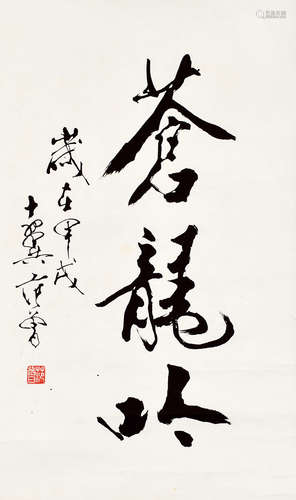 蒼龍吟
歲在甲戌
十翼范曾